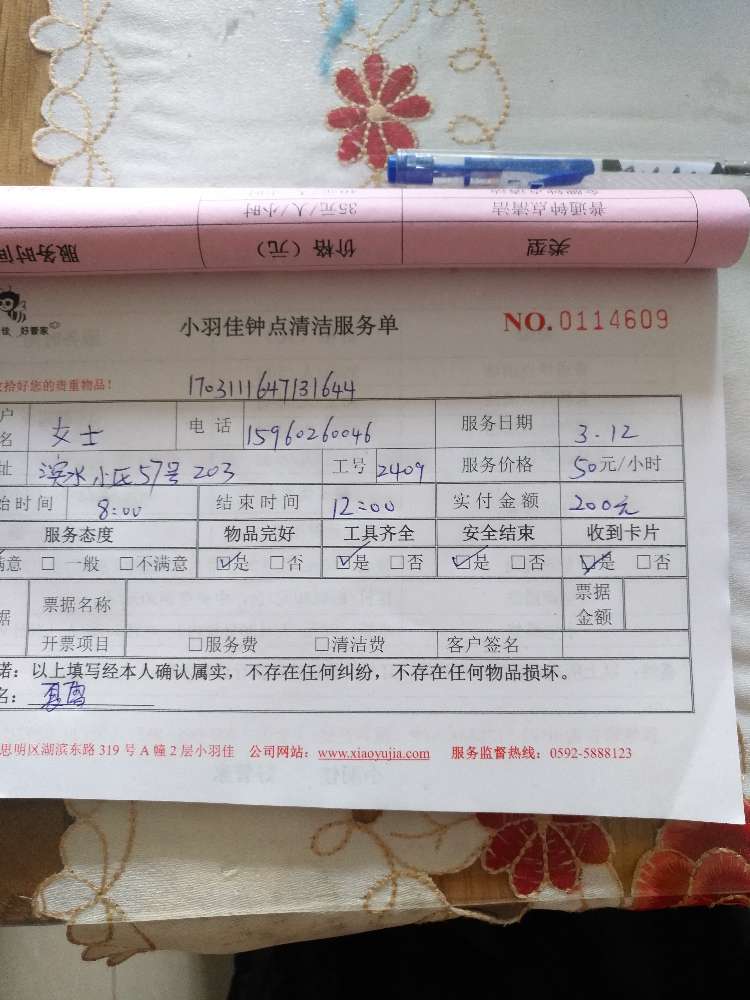 普通钟点清洁 35元/人/小时
类型 价格（元） 服务时间
佳 好管家
小羽佳钟点清洁服务单 NO.0114609
拾好您的贵重物品！ 1703111647131644
户名 女士 电话 15960260046 服务日期 3.12
址 滨水小区57号203 工号 2409 服务价格 50元/小时
始时间 8:00 结束时间 12:00 实付金额 200元
服务态度 物品完好 工具齐全 安全结束 收到卡片
满意 □一般 □不满意 ☑是 □否 ☑是 □否 ☑是 □否 ☑是 □否
据 票据名称 票据金额
开票项目 □服务费 □清洁费 客户签名
诺：以上填写经本人确认属实，不存在任何纠纷，不存在任何物品损坏。
名：
思明区湖滨东路 319 号 A 幢 2 层小羽佳 公司网站：www.xiaoyujia.com 服务监督热线：0592-5888123